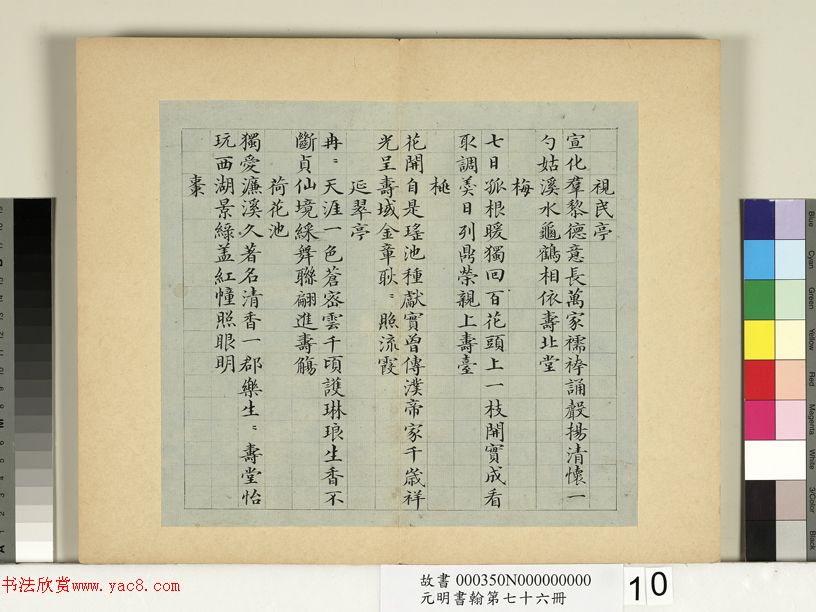 視民亭
宣化羣黎德意長萬家襦袴誦聲揚清懷一
勺姑溪水龜鶴相依壽北堂
梅
七日孤根暖獨回百花頭上一枝開實成看
取調羹日列鼎榮親上壽臺
桃
花開自是瑤池種獻實曾傳漢帝家千歲祥
光呈壽域金章耿〻照流霞
延翠亭
冉〻天涯一色蒼密雲千頃護琳琅生香不
斷貞仙境綵舞聯翩進壽觴
荷花池
獨愛濂溪久著名清香一郡樂生〻壽堂怡
玩西湖景綠盖紅幢照眼明
棗
Blue
Cyan
Green
Yellow
Red
Magenta
White
3/Color
Black
书法欣赏www.yac8.com
故書 000350N000000000
元明書翰第七十六冊
10